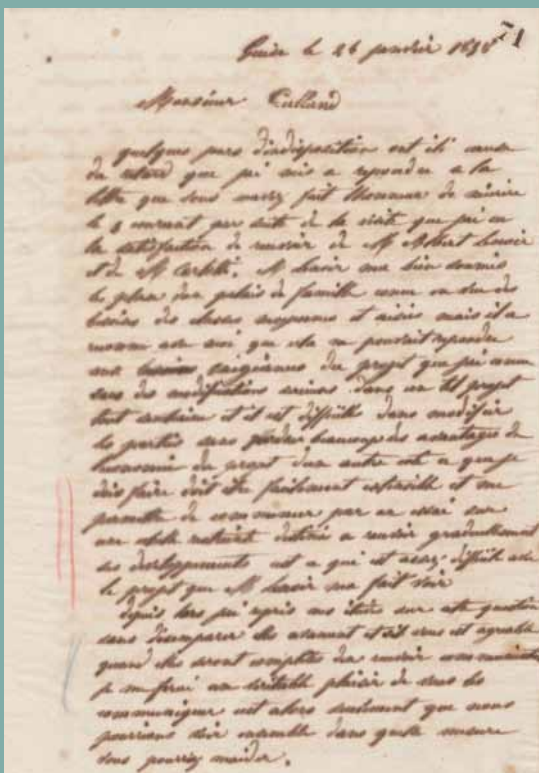 71
Guise le 26 janvier 1858
Monsieur Calland
quelques jours d'indisposition ont été cause
du retard que j'ai mis a repondre a la
lettre que vous mavez fait l'honneur de m'écrire
le 5 courant par suite de la visite que j'ai eu
la satisfaction de recevoir de Mr Albert Lenoir
et de Mr Carletti. Mr Lenoir ma bien soumis
le plan d'un palais de famille concu en vue des
besoins des classes moyennes et aisées mais il a
reconnu avec moi que cela ne pouvait repondre
aux exigences du projet que j'ai concu
sans des modifications serieuses dans un tel projet
tout senchaine et il est difficile d'en modifier
les parties sans perdre beaucoup des avantages de
l'economie du projet d'un autre coté ce que je
dois faire doit être facilement extensible et me
permettre de commencer par un essai sur
une echelle restreinte destiné a recevoir graduellement
ses developpements cest ce qui est assez difficile avec
le projet que Mr Lenoir ma fait voir
depuis lors j'ai repris mes études sur cette question
sans desemparer elles avancent et s'il vous est agreable
quand elles seront completes d'en recevoir communication
je me ferai un véritable plaisir de vous les
communiquer cest alors seulement que nous
pourrions voir ensemble dans quelle mesure
vous pourriez m'aider.